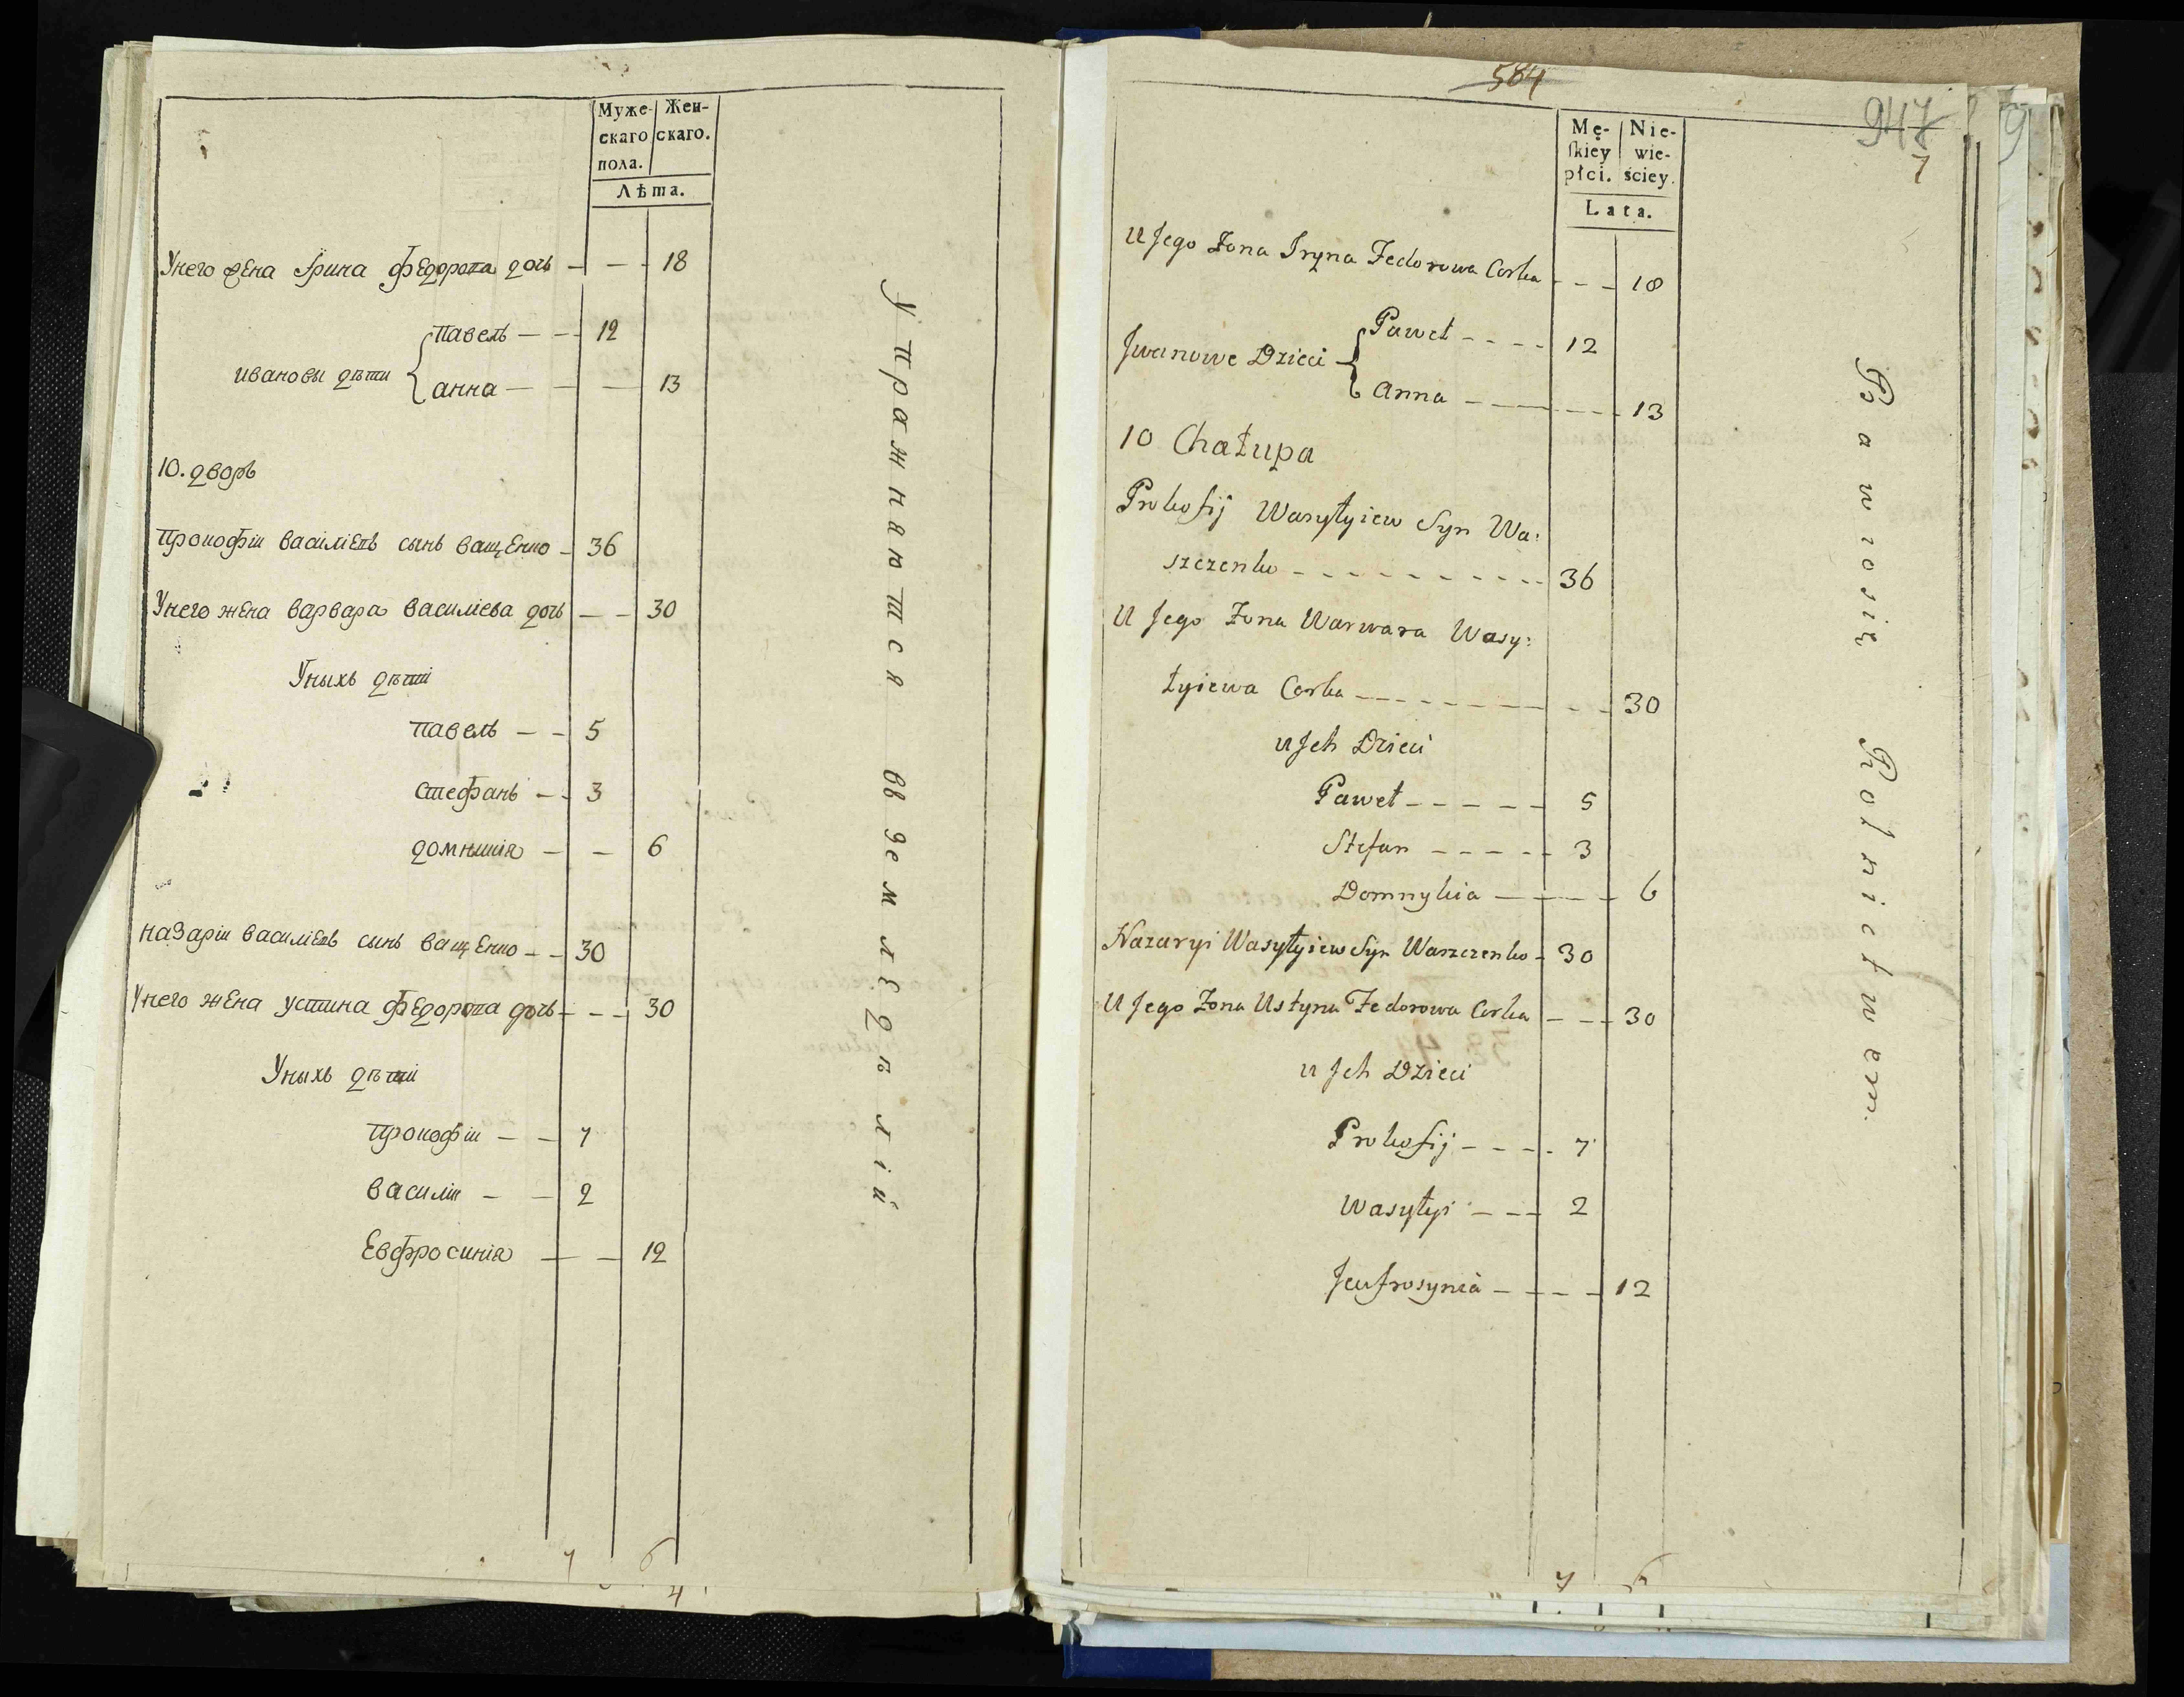 Муже-
скаго
пола.
Жен-
скаго.
Лѣта.
Унего жена Ірина федорова дочь — — — 18
ивановы дѣти
павелъ — — 12
анна — — — 13
10. дворъ
прокофіи василіевъ сынъ ващенко — 36
Унего жена варвара василіева дочь — — 30
Уныхъ дѣти
павелъ — — 5
стефанъ — — 3
домникія — — 6
назаріи василіевъ сынъ ващенко — — 30
Унего жена устина федорова дочь — — — 30
Уныхъ дѣти
прокофіи — — 7
василіи — — 2
Евфросинія — — 12
Упражняются вземледѣлій
7 6
4
584
947
7
Mę-
ſkiey
płci.
Nie-
wie-
ściey.
Lata.
U Jego Żona Iryna Fedorowa Corka - - - 18
Jwanowe Dzieci
Paweł - - - - 12
Anna - - - - - 13
10 Chałupa
Prokofij Wasyłyiew Syn Wa:
szczenko - - - - - - - - - - 36
U Jego Żona Warwara Wasy:
łyiewa Corka - - - - - - - - - 30
u Jch Dzieci
Paweł - - - - - 5
Stefan - - - - - 3
Domnykia - - - - 6
Nazaryi Wasyłyiew Syn Waszczenko - 30
U Jego Żona Ustyna Fedorowa Corka - - - 30
u Jch Dzieci
Prokofij - - - - 7
Wasyłyi - - - 2
Jeufrosynia - - - - 12
Bawiosię Rolnictwem
7 6